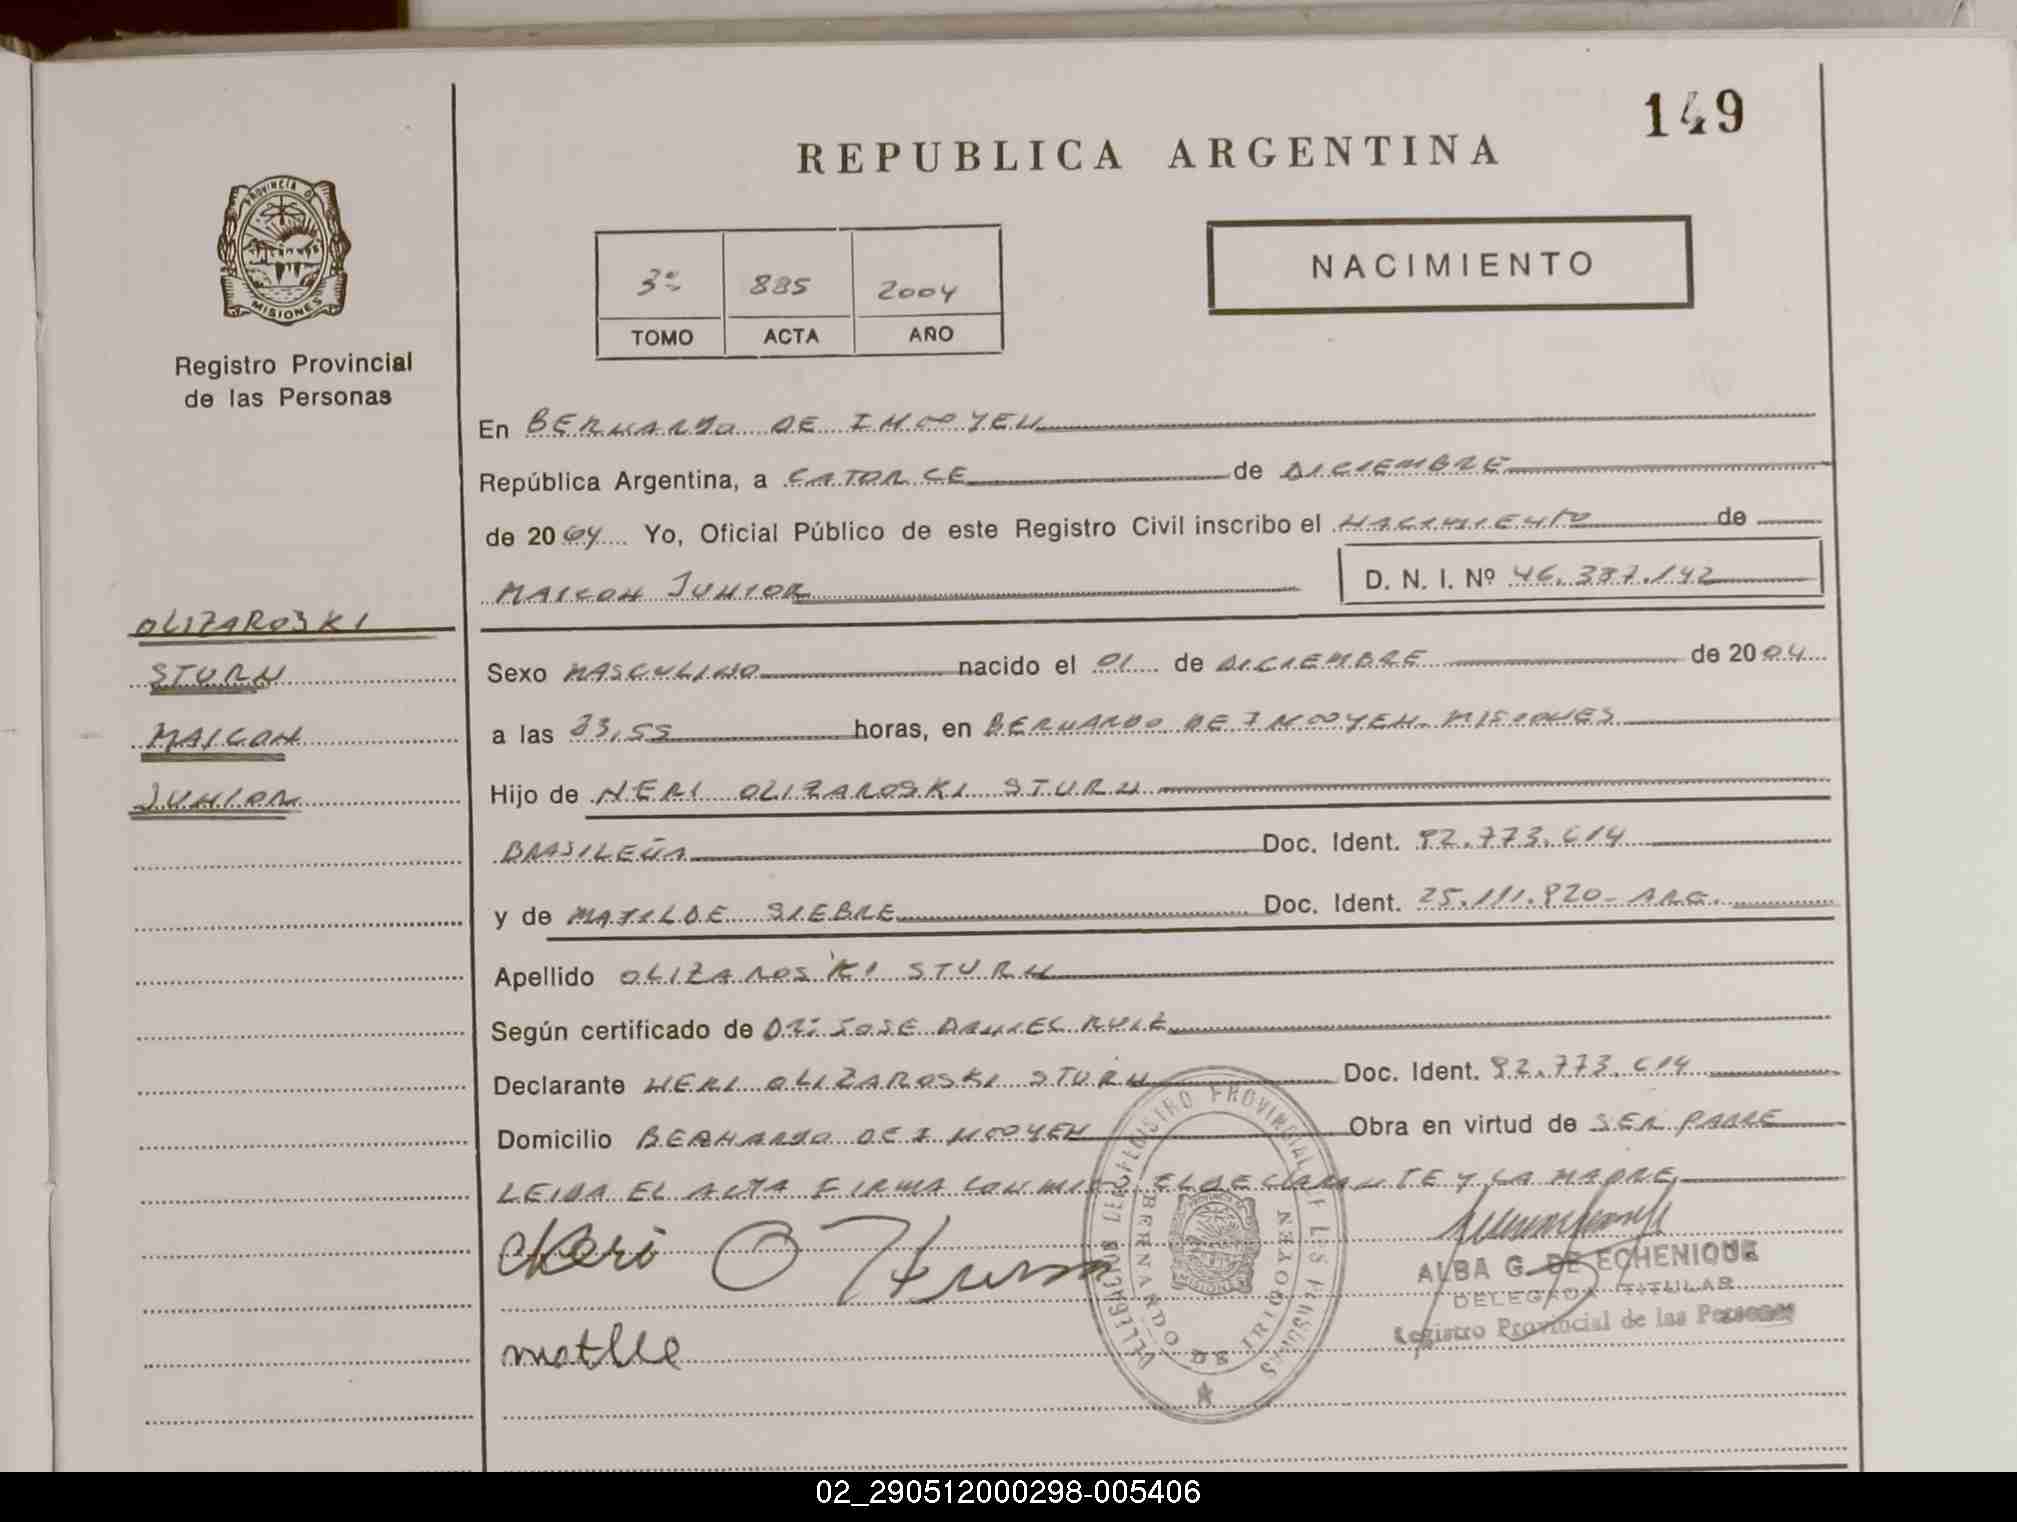 149
REPUBLICA ARGENTINA
PROVINCIA DE
MISIONES
Registro Provincial
de las Personas
3º 885 2004
TOMO ACTA AÑO
NACIMIENTO
En BERNARDO DE IRIGOYEN
República Argentina, a CATORCE de DICIEMBRE
de 2004 Yo, Oficial Público de este Registro Civil inscribo el NACIMIENTO de
MAICON JUNIOR D. N. I. Nº 46.387.142
OLIZAROSKI
STURN
MAICON
JUNIOR
Sexo MASCULINO nacido el 01 de DICIEMBRE de 2004
a las 23,55 horas, en BERNARDO DE IRIGOYEN - MISIONES
Hijo de NERI OLIZAROSKI STURN
BRASILEÑA Doc. Ident. 92.773.614
y de MATILDE SIEBRE Doc. Ident. 25.111.920 - ARG.
Apellido OLIZAROSKI STURN
Según certificado de DR. JOSE DANIEL RUIZ
Declarante NERI OLIZAROSKI STURN Doc. Ident. 92.773.614
Domicilio BERNARDO DE IRIGOYEN Obra en virtud de SER PADRE
LEIDA EL ACTA FIRMA CON MIGO EL DECLARANTE Y LA MADRE
Neri O
DELEGACION DEL REGISTRO PROVINCIAL DE LAS PERSONAS
BERNARDO DE IRIGOYEN
ALBA G. DE ECHENIQUE
DELEGADA TITULAR
Registro Provincial de las Personas
02_290512000298-005406